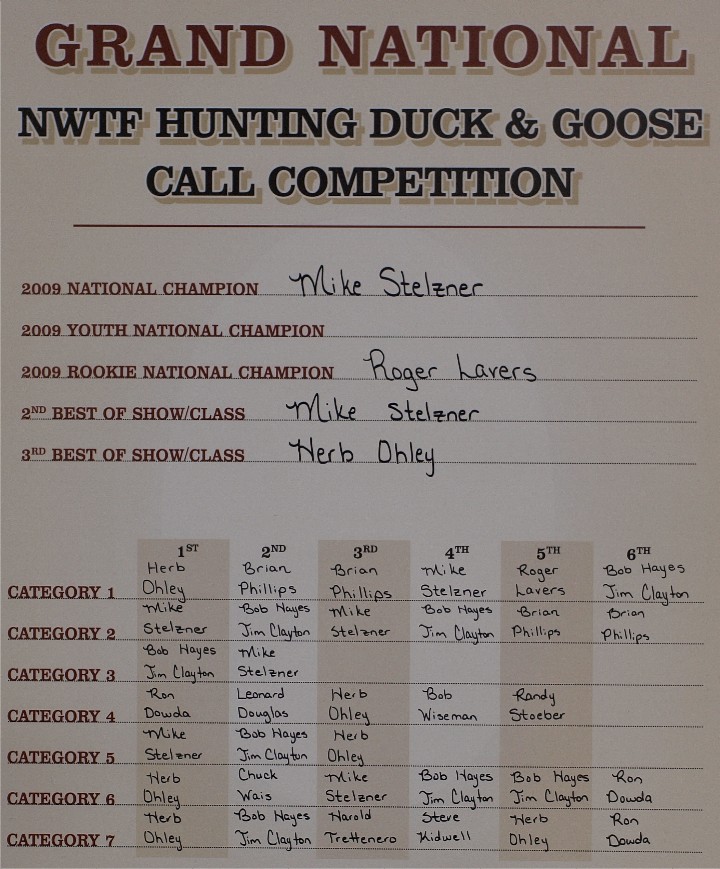 GRAND NATIONAL
NWTF HUNTING DUCK & GOOSE
CALL COMPETITION
2009 NATIONAL CHAMPION Mike Stelzner
2009 YOUTH NATIONAL CHAMPION
2009 ROOKIE NATIONAL CHAMPION Roger Lavers
2ND BEST OF SHOW/CLASS Mike Stelzner
3RD BEST OF SHOW/CLASS Herb Ohley
1ST 2ND 3RD 4TH 5TH 6TH
Herb Brian Brian Mike Roger Bob Hayes
CATEGORY 1 Ohley Phillips Phillips Stelzner Lavers Jim Clayton
Mike Bob Hayes Mike Bob Hayes Brian Brian
CATEGORY 2 Stelzner Jim Clayton Stelzner Jim Clayton Phillips Phillips
Bob Hayes Mike
CATEGORY 3 Jim Clayton Stelzner
Ron Leonard Herb Bob Randy
CATEGORY 4 Dowda Douglas Ohley Wiseman Stoeber
Mike Bob Hayes Herb
CATEGORY 5 Stelzner Jim Clayton Ohley
Herb Chuck Mike Bob Hayes Bob Hayes Ron
CATEGORY 6 Ohley Wais Stelzner Jim Clayton Jim Clayton Dowda
Herb Bob Hayes Harold Steve Herb Ron
CATEGORY 7 Ohley Jim Clayton Trettenero Kidwell Ohley Dowda